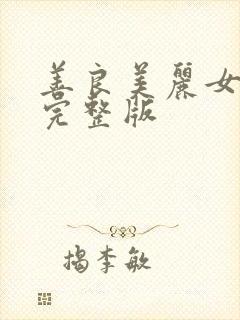 善良美麗女
完整版
揭李敏